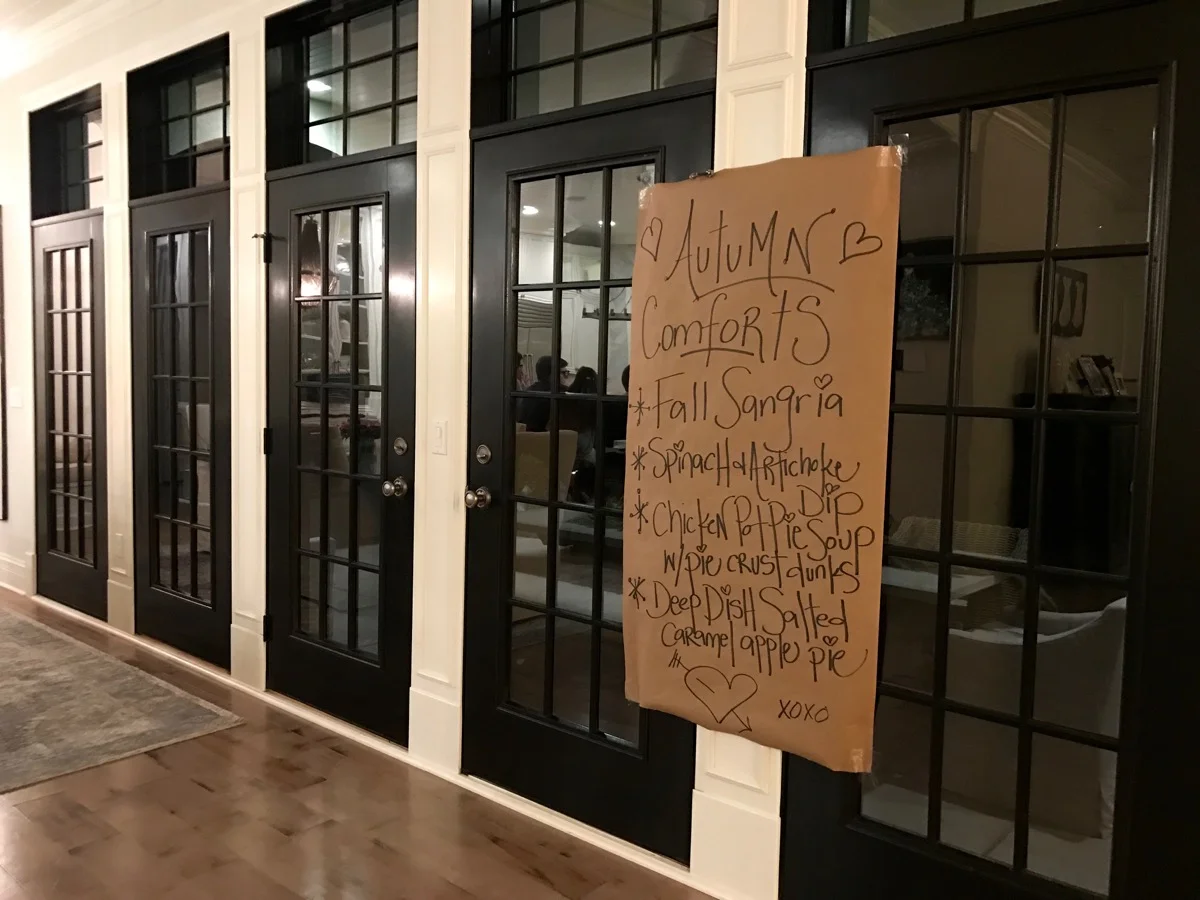 AutuMN
ComfoRtS
* Fall Sangria
* SpinacH & ARtichoke
Dip
* CHicKeN PotPie Soup
w/pie cRust dunks
* Deep DisH Salted
CaRamel apple pie
XOXO